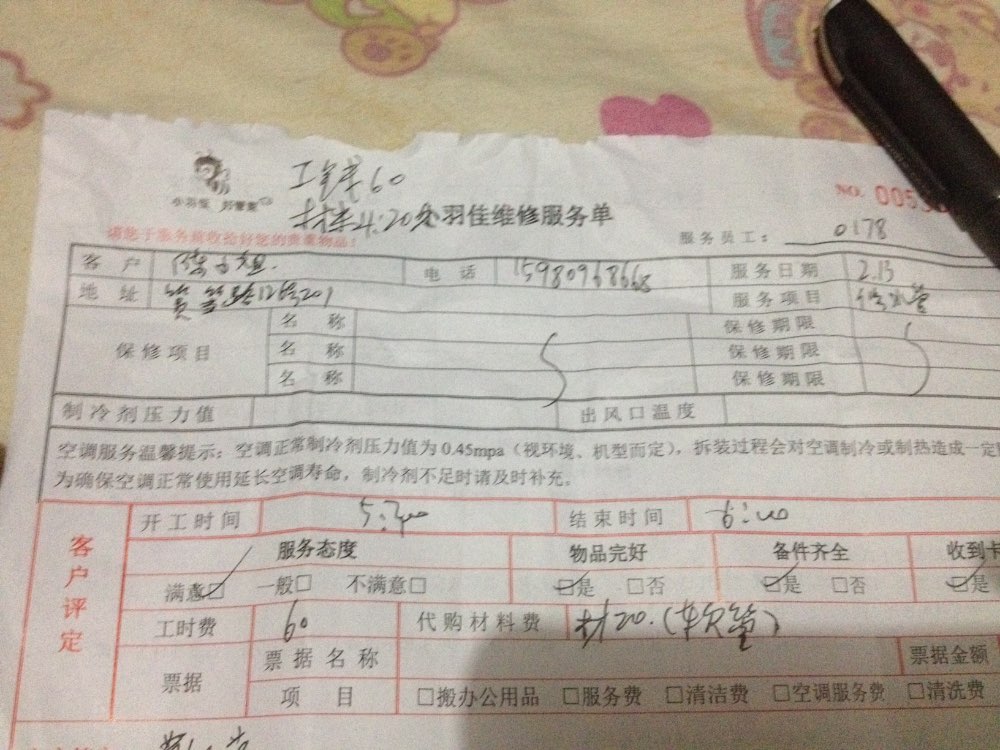 工钱60
NO. 005
羽佳维修服务单
服务员工: 0178
请您于服务前收拾好您的贵重物品!
客户 电话 15980968668 服务日期 2.13
地址 服务项目 修水管
保修项目 名称 保修期限
名称 保修期限
名称 保修期限
制冷剂压力值 出风口温度
空调服务温馨提示: 空调正常制冷剂压力值为0.45mpa(视环境、机型而定), 拆装过程会对空调制冷或制热造成一定
为确保空调正常使用延长空调寿命, 制冷剂不足时请及时补充。
客户评定
开工时间 结束时间
服务态度 物品完好 备件齐全 收到卡
满意□ 一般□ 不满意□ □是 □否 □是 □否 □是
工时费 60 代购材料费 材20.(软管)
票据 票据名称 票据金额
项目 □搬办公用品 □服务费 □清洁费 □空调服务费 □清洗费